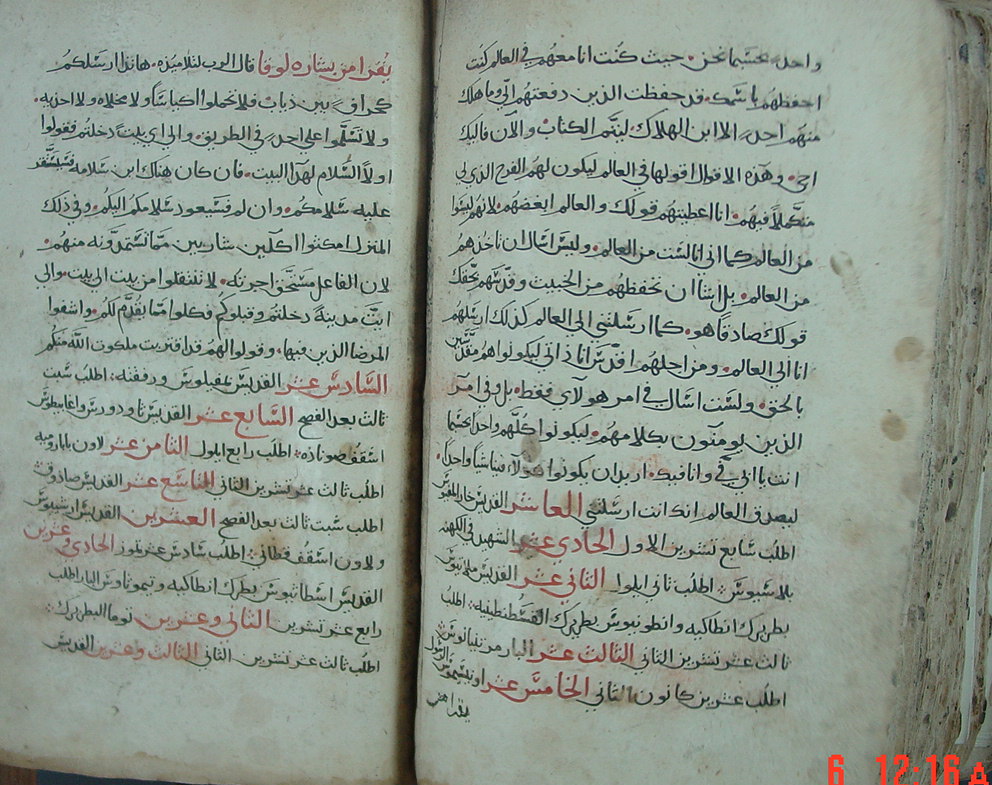 واحد بحسبما نحن. حيث كنت انا معهم في العالم كنت
احفظهم باسمك. قد حفظت الذين دفعتهم الي وما هلك
منهم احد الا ابن الهلاك. ليتم الكتاب والان فاليك
اجي. وهذه الاقوال اقولها في العالم ليكون لهم الفرح الذي لي
متكملاً فيهم. انا اعطيتهم قولك والعالم ابغضهم. لانهم ليسوا
من العالم كما اني انا لست من العالم. وليس اسال ان تاخذهم
من العالم. بل اشا ان تحفظهم من الخبيث وقدسهم بحقك
قولك صادقاً هو. كما ارسلتني الي العالم كذلك ارسلهم
انا الي العالم. ومن اجلهم اقدس انا ذاتي ليكونوا هم مقدسين
بالحق. ولست اسال في امر هولاي فقط. بل وفي امر
الذين يومنون بكلامهم. ليكونوا كلهم واحد بحسبما
انت ياابي في وانا فيك. اريد ان يكونوا هولاء فينا شيا واحدا.
ليصدق العالم انك انت ارسلتني العاشر القديس
اطلب سابع تشرين الاول الحادي عشر الشهيد في الكهنه
اطلب ثاني ايلول الثاني عشر القديس
بطريرك انطاكيه وانطونيوس بطريرك القسطنطينيه. اطلب
ثالث عشر تشرين الثاني الثالث عشر البار مرتينيانوس
اطلب عشرين كانون الثاني الخامس عشر اونيسيموس الرسول
يقرا
يقرا من بشاره لوقا قال الرب لتلاميذه. هانذا ارسلكم
كخراف بين ذياب فلا تحملوا اكياسا ولا مخلاه ولا احذيه.
ولا تسلموا علي احد في الطريق. والي اي بيت دخلتم فقولوا
اولاً السلام لهذا البيت. فان كان هناك ابن سلامه فسيستقر
عليه سلامكم. وان لم فسيعود سلامكم اليكم. وفي ذلك
المنزل امكثوا اكلين شاربين مما تستمدونه منهم.
لان الفاعل مستحق اجرته. لا تنتقلوا من بيت الي بيت. والي
ايت مدينه دخلتم وقبلوكم فكلوا مما يقدم لكم. واشفوا
المرضا الذين فيها. وقولوا لهم قد اقتربت ملكوت الله منكم
السادس عشر القديس بمفيلوس ورفقته: اطلب سبت
ثالث بعد الفصح السابع عشر القديس تاودورس
اسقف اطلب رابع ايلول الثامن عشر لاون بابا روميه
اطلب ثالث عشر تشرين الثاني التاسع عشر القديس صادوق
اطلب سبت ثالث بعد الفصح العشرين القديس
ولاون اسقف قطاني: اطلب سادس عشر تموز الحادي وعشرين
القديس اسطاتيوس بطريرك انطاكيه وتيموتاوس البار اطلب
رابع عشر تشرين الثاني وعشرين توما البطريرك:
اطلب ثالث عشر تشرين الثاني الثالث وعشرين القديس